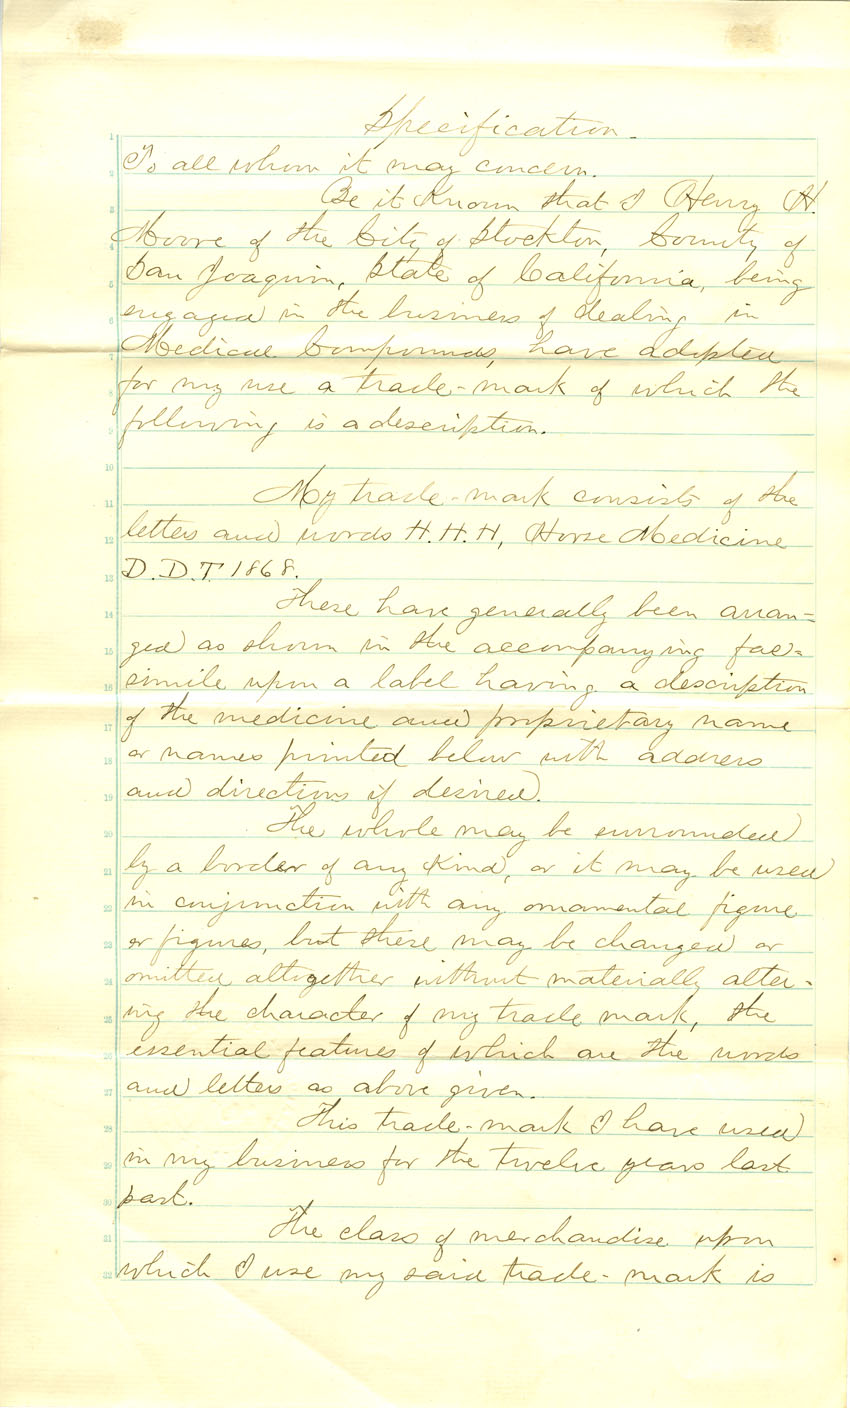 Specification.
To all whom it may concern.
Be it Known that I Henry H.
Moore of the City of Stockton, County of
San Joaquin, State of California, being
engaged in the business of dealing in
Medical Compounds, have adopted
for my use a trade-mark of which the
following is a description.
My trade-mark consists of the
letters and words H.H.H, Horse Medicine
D.D.T 1868.
These have generally been arran=
ged as shown in the accompanying fac=
simile upon a label having a description
of the medicine and proprietary name
or names printed below with address
and directions if desired.
The whole may be surrounded
by a border of any Kind, or it may be used
in conjunction with any ornamental figure
or figures, but these may be changed or
omitted altogether without materially alter-
ing the character of my trade mark, the
essential features of which are the words
and letters as above given.
This trade-mark I have used
in my business for the twelve years last
past.
The class of merchandise upon
which I use my said trade-mark is